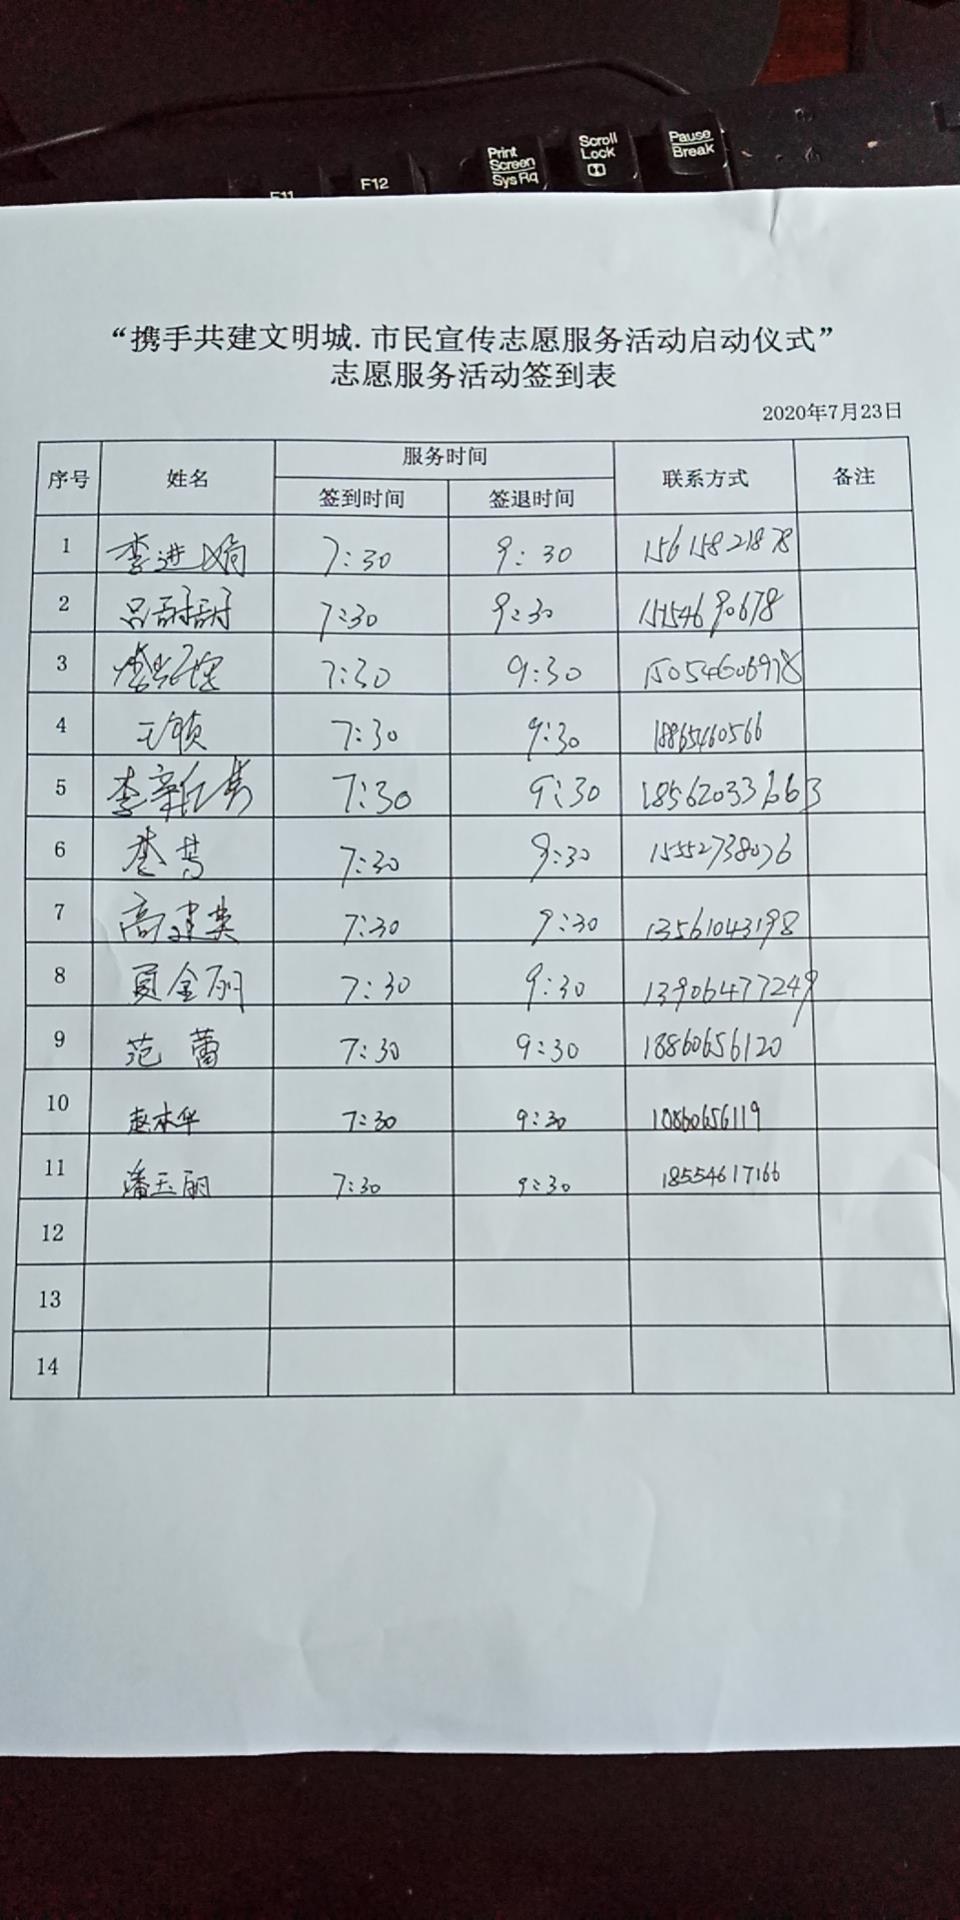 Print Screen SysRq
Scroll Lock
Pause Break
F11
F12
“携手共建文明城.市民宣传志愿服务活动启动仪式”
志愿服务活动签到表
2020年7月23日
序号 姓名 服务时间 联系方式 备注
签到时间 签退时间
1 李进 7:30 9:30 15615821878
2 吕甜甜 7:30 9:30 15154690678
3 7:30 9:30 15054606978
4 王颖 7:30 9:30 18865460566
5 李 7:30 9:30 18562033663
6 7:30 9:30 15552738076
7 高建英 7:30 9:30 13561043198
8 员金丽 7:30 9:30 13906477249
9 范蕾 7:30 9:30 18860656120
10 赵木华 7:30 9:30 18860656119
11 潘玉丽 7:30 9:30 18554617166
12
13
14